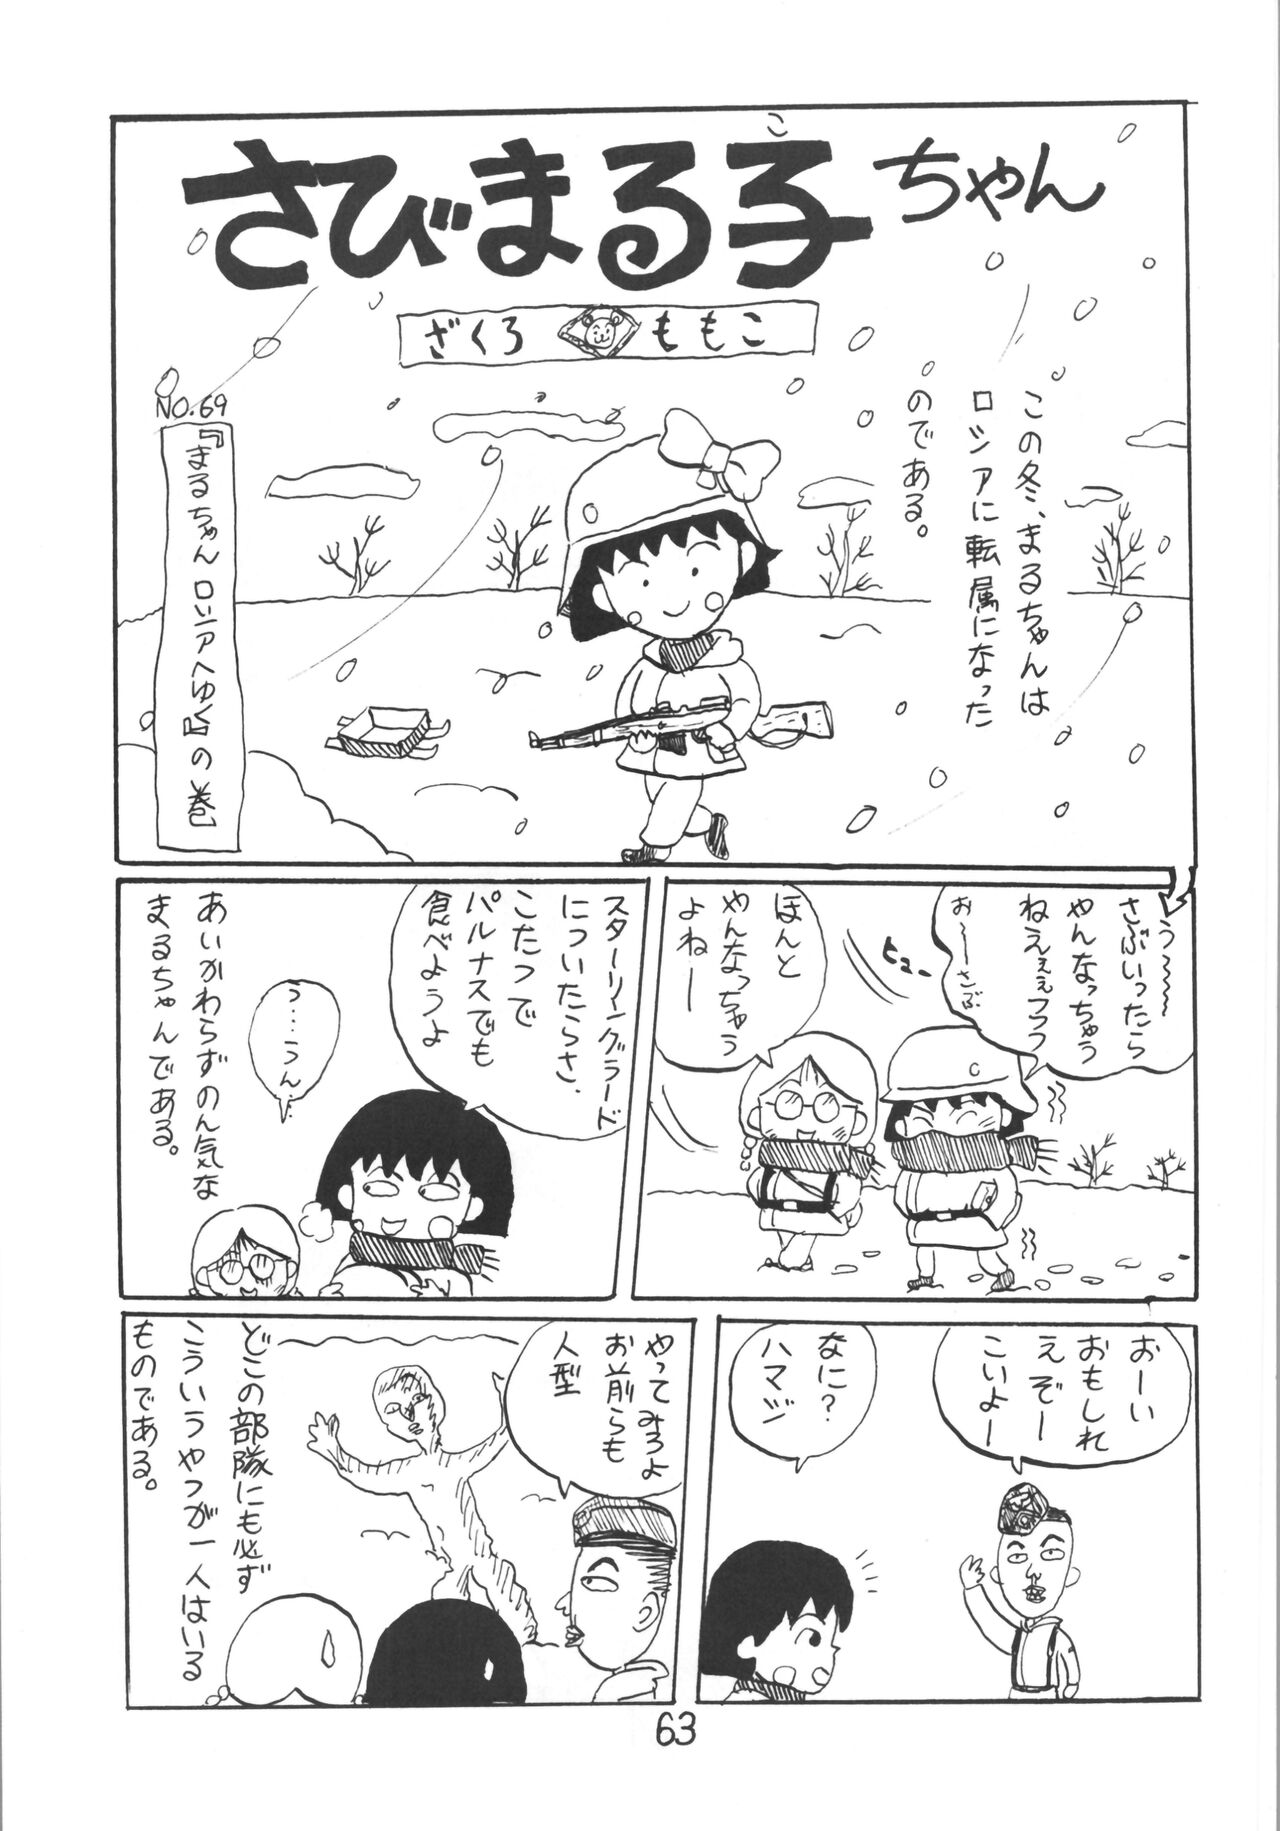 さびまる子ちゃん
こ
ざくろ ももこ
この冬、まるちゃんは
ロシアに転属になった
のである。
NO.69
『まるちゃんロシアへゆく』の巻
う〜〜〜
さぶいったら
やんなっちゃう
ねえぇぇフフフ
お〜〜さぶ
ヒュー
ほんと
やんなっちゃう
よねー
スターリングラード
についたらさ、
こたつで
パルナスでも
食べようよ
う…うん…
あいかわらずのん気な
まるちゃんである。
おーい
おもしれ
えぞー
こいよー
なに?
ハマジ
やってみろよ
お前らも
人型
どこの部隊にも必ず
こういうやつが一人はいる
ものである。
63